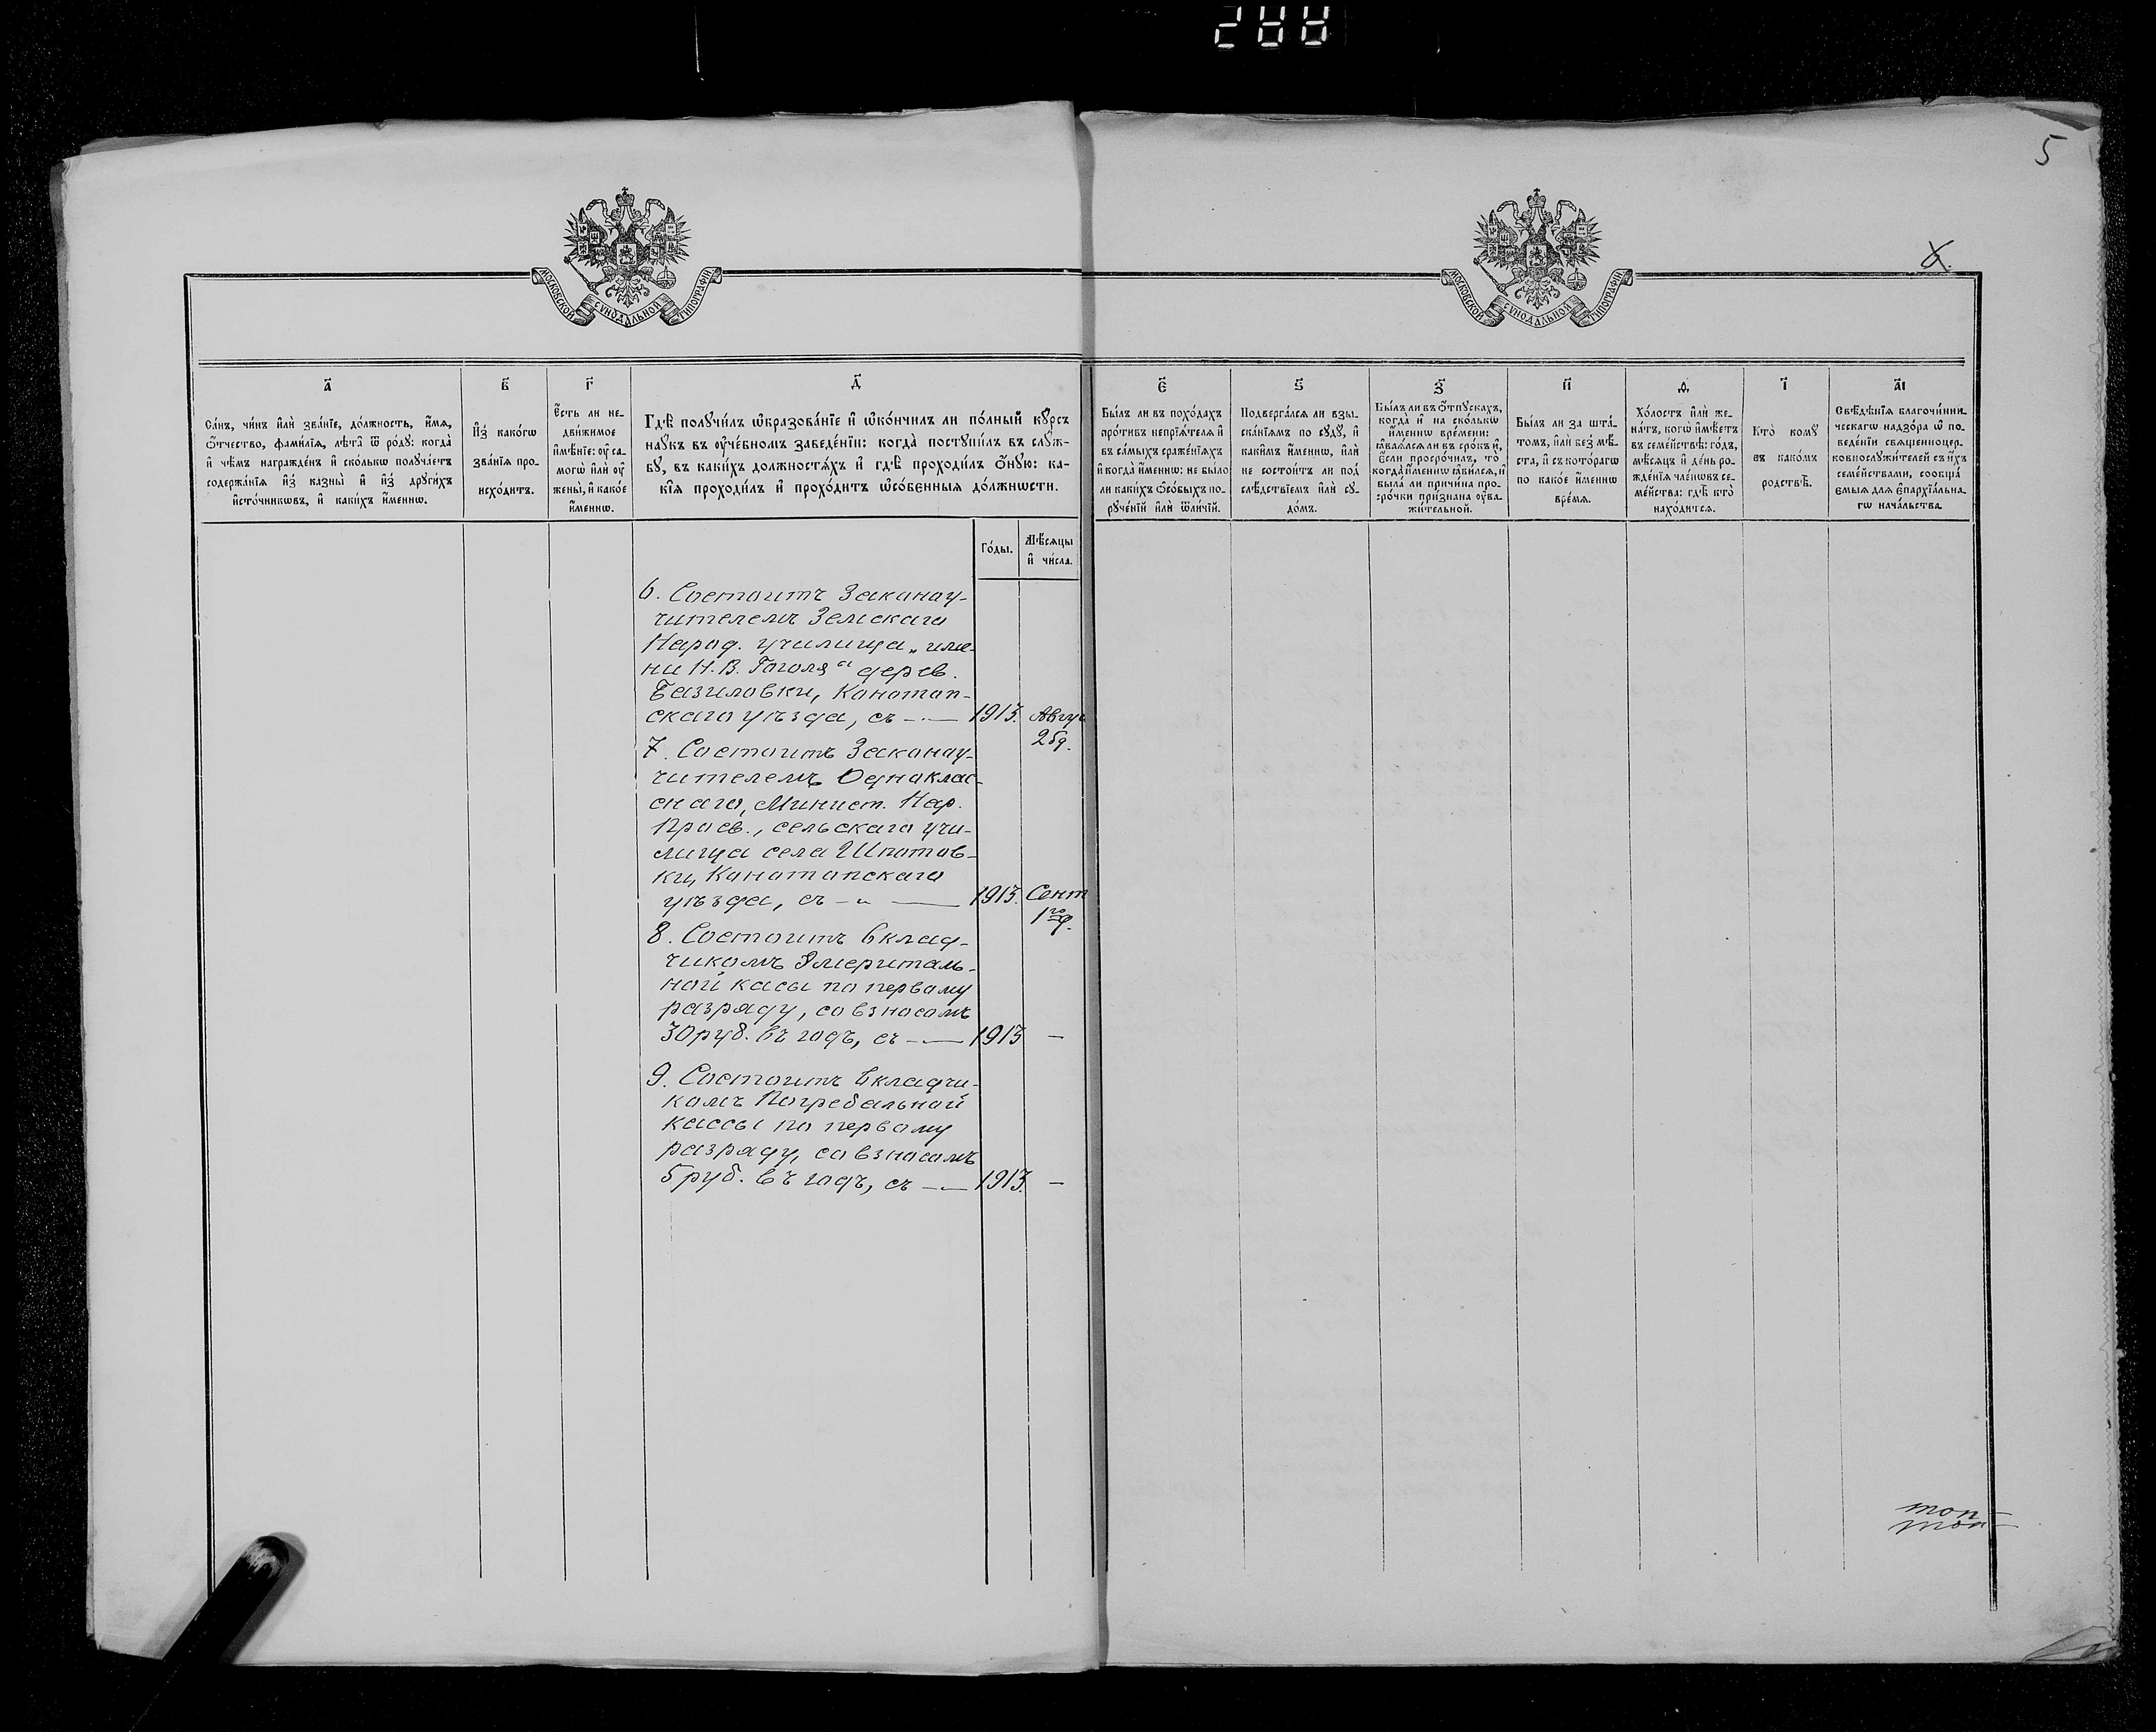 5
6.
МОСКОВСКОЙ СѴНОДАЛЬНОЙ ТИПОГРАФІИ
МОСКОВСКОЙ СѴНОДАЛЬНОЙ ТИПОГРАФІИ
а҃
Са́нъ, чи́нъ и҆лѝ зва́нїе, до́лжность, и҆́мѧ,
ѻ҆́тчество, фами́лїѧ, лѣ́та̀ ѿ ро́дꙋ: когда̀
и҆ чѣ́мъ награжде́нъ и҆ ско́лькѡ полꙋча́етъ
содержа́нїѧ и҆з̾ казны̀ и҆ и҆з̾ дрꙋги́хъ
и҆сто́чникѡвъ, и҆ каки́хъ и҆́меннѡ.
в҃
И҆з̾ како́гѡ
зва́нїѧ про-
исхо́дитъ.
г҃
Є҆́сть ли не-
дви́жимое
и҆мѣ́нїе: ᲂу҆ са-
могѡ̀ и҆лѝ ᲂу҆
жены̀, и҆ како́е
и҆́меннѡ.
д҃
Гдѣ̀ полꙋчи́лъ ѡ҆бразова́нїе и҆ ѡ҆ко́нчилъ ли по́лный кꙋ́рсъ
наꙋ́къ въ ᲂу҆че́бномъ заведе́нїи: когда̀ постꙋпи́лъ въ слꙋ́ж-
бꙋ, въ каки́хъ должностѧ́хъ и҆ гдѣ̀ проходи́лъ ѻ҆́нꙋю: ка-
кі́ѧ проходи́лъ и҆ прохо́дитъ ѡ҆со́бенныѧ до́лжнѡсти.
Го́ды.
Мѣ́сѧцы
и҆ чи́сла.
є҃
Бы́лъ ли въ похо́дахъ
про́тивъ непрїѧ́телѧ и҆
въ са́мыхъ сраже́нїѧхъ
и҆ когда̀ и҆́меннѡ: не бы́ло
ли каки́хъ ѻ҆со́быхъ по-
рꙋче́нїй и҆лѝ ѿли́чїй.
ѕ҃
Подверга́лсѧ ли взы-
ска́нїѧмъ по сꙋдꙋ̀, и҆
каки̑мъ и҆́меннѡ, и҆лѝ
не состои́тъ ли под̾
слѣ́дствїемъ и҆лѝ сꙋ-
до́мъ.
з҃
Бы́лъ ли въ ѻ҆́тпꙋскахъ,
когда̀ и҆ на ско́лькѡ
и҆́меннѡ вре́мени:
ꙗ҆влѧ́лсѧ ли въ сро́къ и҆,
є҆́сли просро́чилъ, то̀
когда̀ и҆́меннѡ ꙗ҆ви́лсѧ, и҆
была̀ ли причи́на про-
сро́чки при́знана ᲂу҆ва-
жи́тельной.
и҃
Бы́лъ ли за шта́-
томъ, и҆лѝ без̾ мѣ́-
ста, и҆ съ кото́рагѡ
по како́е и҆́меннѡ
вре́мѧ.
ѳ҃
Хо́лостъ и҆лѝ же-
на́тъ, когѡ̀ и҆мѣ́етъ
въ семе́йствѣ: го́дъ,
мѣ́сѧцъ и҆ де́нь ро-
жде́нїѧ чле́нѡвъ се-
ме́йства: гдѣ̀ кто̀
нахо́дитсѧ.
і҃
Кто̀ комꙋ̀
въ како́мъ
родствѣ̀.
а҃і
Свѣ́дѣнїѧ благочи́нни-
ческагѡ надзо́ра ѡ҆ по-
веде́нїи свѧщеннѡцер-
ковнослꙋжи́телей съ и҆́хъ
семе́йствами, сообща́-
ємыѧ длѧ Є҆парха́льна-
гѡ нача́льства.
6. Состоитъ Законоу-
чителемъ Земскаго
Народ. училища „име-
ни Н. В. Гоголя“ дерев.
Базиловки, Конотоп-
скаго уѣзда, съ — 1913. Авгус
26д.
7. Состоитъ Законоу-
чителемъ Однаклас-
снаго, Минист. Нар.
Просв., сельскаго учи-
лища села Шпотов-
ки, Конотопскаго
уѣзда, съ — 1913. Сент
1го д.
8. Состоитъ вклад-
чикомъ Эмериталь-
ной касы по первому
разряду, со взносомъ
30 руб. въ годъ, съ — 1913 —
9. Состоитъ вкладчи-
комъ Погребальной
кассы по первому
разряду, со взносомъ
5 руб. въ годъ, съ — 1913. —